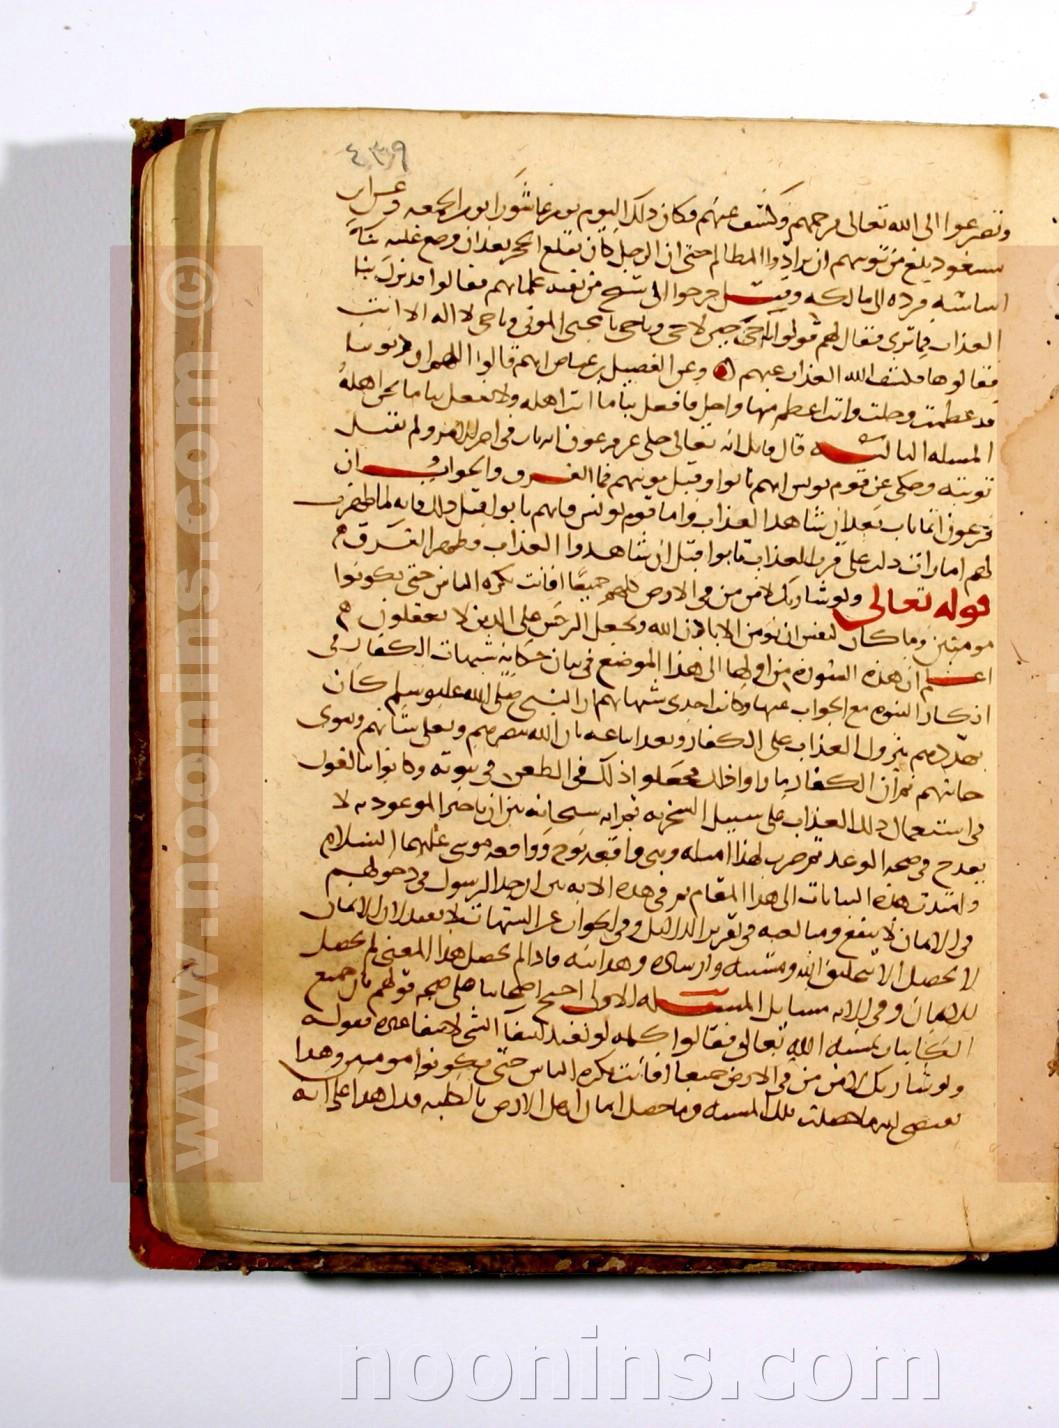 ٤٣٩
وتضرعوا الى الله تعالى فرحمهم وكشف عنهم وكان ذلك اليوم يوم عاشورا يوم الجمعه وعن ابن
مسعود بلغ من توبتهم ان يرادوا المظالم حتى ان الرجل كان يقلع الحجر بعد ان وضع عليه بنآ
اساسه فيرده الى مالكه وقيل خرجوا الى شيخ من بقيه علمايهم فقالوا قد نزل بنا
العذاب فما ترى فقال لهم قولوا يا حي حين لا حي ويا حي يا محيي الموتى ويا حي لا اله الا انت
فقالوها فكشف الله العذاب عنهم وعن الفضيل بن عياض انهم قالوا اللهم ان ذنوبنا
قد عظمت وجلت وانت اعظم منها واجل فافعل بنا ما انت اهله ولا تفعل بنا ما نحن اهله
المسله الثالثه قال قايل انه تعالى حكى عن فرعون انه تاب في اخر الامر ولم تقبل
توبته وحكى عن قوم يونس انهم تابوا وقبل توبتهم فما الفرق والجواب ان
فرعون انما تاب بعد ان شاهد العذاب واما قوم يونس فانهم تابوا قبل ذلك فانه لما ظهرت
لهم امارات دلت على قرب العذاب تابوا قبل ان شاهدوا العذاب فظهر الفرق
قوله تعالى ولو شا ربك لامن من في الارض كلهم جميعا افانت تكره الناس حتى يكونوا
مومنين وما كان لنفس ان تومن الا باذن الله ويجعل الرجس على الذين لا يعقلون
اعلم ان هذه السوره من اولها الى هذا الموضع في بيان حكايه شبهات الكفار في
انكار النبوه مع الجواب عنها وكانت احدى شبهاتهم ان النبي صلى الله عليه وسلم كان
يهددهم بنزول العذاب على الكفار وبعد اتباعه بان الله ينصرهم ويعلي شانهم ويقوى
جانبهم ثم ان الكفار ما راوا ذلك فجعلوا ذلك في الطعن في نبوته وكانوا يبالغون
في استعجال ذلك العذاب على سبيل السخريه ثم انه سبحانه بين ان تاخير الموعود به لا
يقدح في صحه الوعد ثم ضرب لهذا امثله وهي واقعه نوح وواقعه موسى عليهما السلام
وامتدت هذه البيانات الى هذا المقام ثم في هذه الايه بين ان جد الرسول في دخولهم
في الايمان لا ينفع ومبالغته في تقرير الدلايل وفي الجواب عن الشبهات لا تفيد لان الايمان
لا يحصل الا بتخليق الله ومشيته وارشاده وهدايته فاذا لم يحصل هذا المعنى لم يحصل
الايمان وفي الايه مسايل المسله الاولى احتج اصحابنا على صحه قولهم بان جميع
الكاينات بمشيه الله تعالى فقالوا كلمه لو تفيد انتفا الشي لانتفا غيره فقوله
ولو شا ربك لامن من في الارض جميعا افانت تكره الناس حتى يكونوا مومنين وهذا
يقتضي انه ما حصلت تلك المشيه وما حصل ايمان اهل الارض بالكليه فدل هذا على انه
www.noonins.com ©
noonins.com